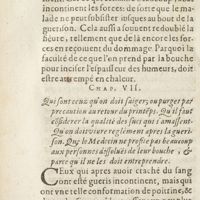 incontinent les forces: de sorte que le ma-
lade ne peut subsister iusques au bout de la
guerison. Cela aussi souuent redouble la fie-
ure, tellement que de là encore les for-
ces en reçoiuent du dommage. Parquoi la
faculté de ce que l'on prend par la bouche
pour inciser l'espaisseur des humeurs, doit
estre attrempé en chaleur.
CHAP. VII.
Qui sont ceux qu'on doit saigner, ou purger par
precaution au retour du printēps. Qu'il faut
cōsiderer la qualité des sucs qui s'amassent.
Qu'on doit viure reglément apres la gueri-
son. Que le Medecin ne profite pas beaucoup
aux personnes dissolues de leur bouche, &
parce qu'il ne les doit entreprendre.
CEux qui apres auoir craché du sang
ont esté gueris incontinent, mais qui
ont vne telle conformation de poitrine, &